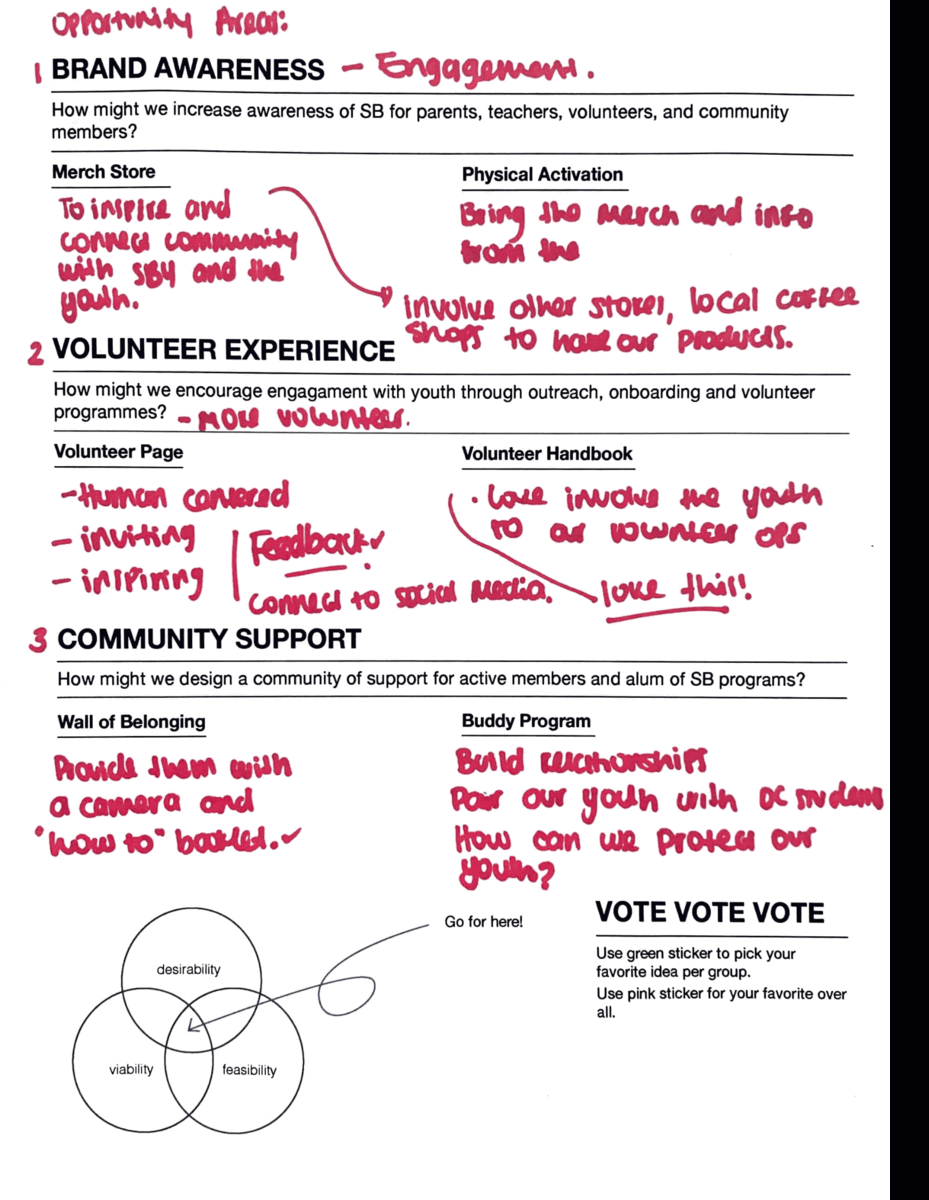 Opportunity Areas:
1 BRAND AWARENESS - Engagement.
How might we increase awareness of SB for parents, teachers, volunteers, and community
members?
Merch Store
To inspire and
connect community
with SBY and the
youth.
Physical Activation
Bring the merch and info
from the
involve other stores, local coffee
shops to have our products.
2 VOLUNTEER EXPERIENCE
How might we encourage engagament with youth through outreach, onboarding and volunteer
programmes? - more volunteer.
Volunteer Page
- Human centered
- inviting
- inspiring
Feedback ✓
connect to social media.
Volunteer Handbook
• Love involve the youth
to our volunteer ops
love this!
3 COMMUNITY SUPPORT
How might we design a community of support for active members and alum of SB programs?
Wall of Belonging
Provide them with
a camera and
"how to" booklet. ✓
Buddy Program
Build relationships
Pair our youth with OC students
How can we protect our
youth?
desirability
viability
feasibility
Go for here!
VOTE VOTE VOTE
Use green sticker to pick your
favorite idea per group.
Use pink sticker for your favorite over
all.